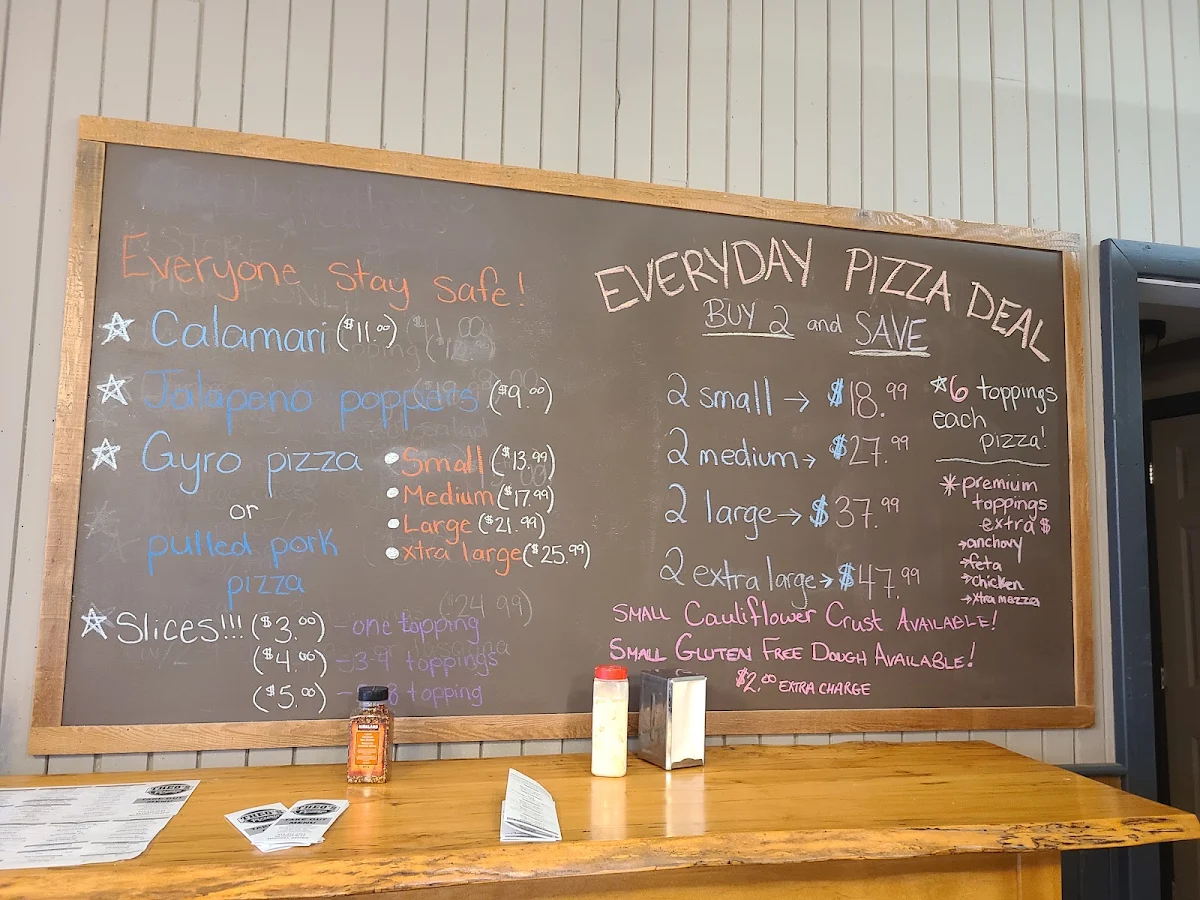 Everyone stay safe!
☆ Calamari ($11.00)
☆ Jalapeno poppers ($9.00)
☆ Gyro pizza
or
pulled pork
pizza
• Small ($13.99)
• Medium ($17.99)
• Large ($21.99)
• xtra large ($25.99)
($24.99)
☆ Slices!!! ($3.00) - one topping
($4.00) - 3-4 toppings
($5.00) - topping
EVERYDAY PIZZA DEAL
BUY 2 and SAVE
2 small → $18.99
2 medium → $27.99
2 large → $37.99
2 extra large → $47.99
*6 toppings
each
pizza!
*premium
toppings
extra $
→anchovy
→feta
→chicken
→xtra mozza
SMALL Cauliflower Crust AVAILABLE!
SMALL GLUTEN FREE DOUGH AVAILABLE!
$2.00 EXTRA CHARGE
KIRKLAND
THEO'S
TAKE OUT
MENU
THEO'S
TAKE OUT
MENU